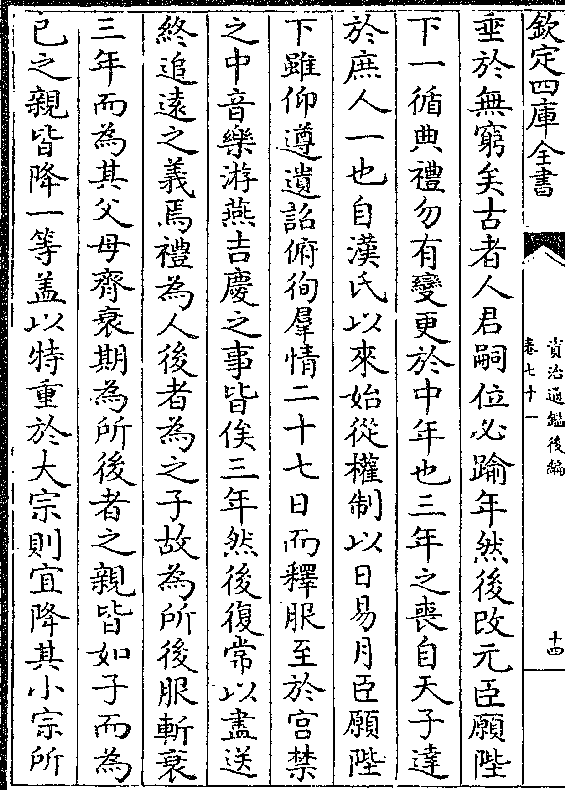 欽定四庫全書
資治通鑑後編
卷七十一
十四
垂於無窮矣古者人君嗣位必踰年然後改元臣願陛
下一循典禮勿有變更於中年也三年之喪自天子達
於庶人一也自漢氏以來始從權制以日易月臣願陛
下雖仰遵遺詔俯徇羣情二十七日而釋服至於宫禁
之中音樂游燕吉慶之事皆俟三年然後復常以盡送
終追遠之義焉禮為人後者為之子故為所後服斬衰
三年而為其父母齊衰期為所後者之親皆如子而為
已之親皆降一等盖以特重於大宗則宜降其小宗所